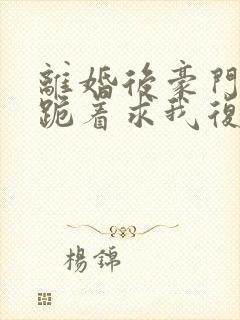 離婚後豪門
跪着求我復
楊錦